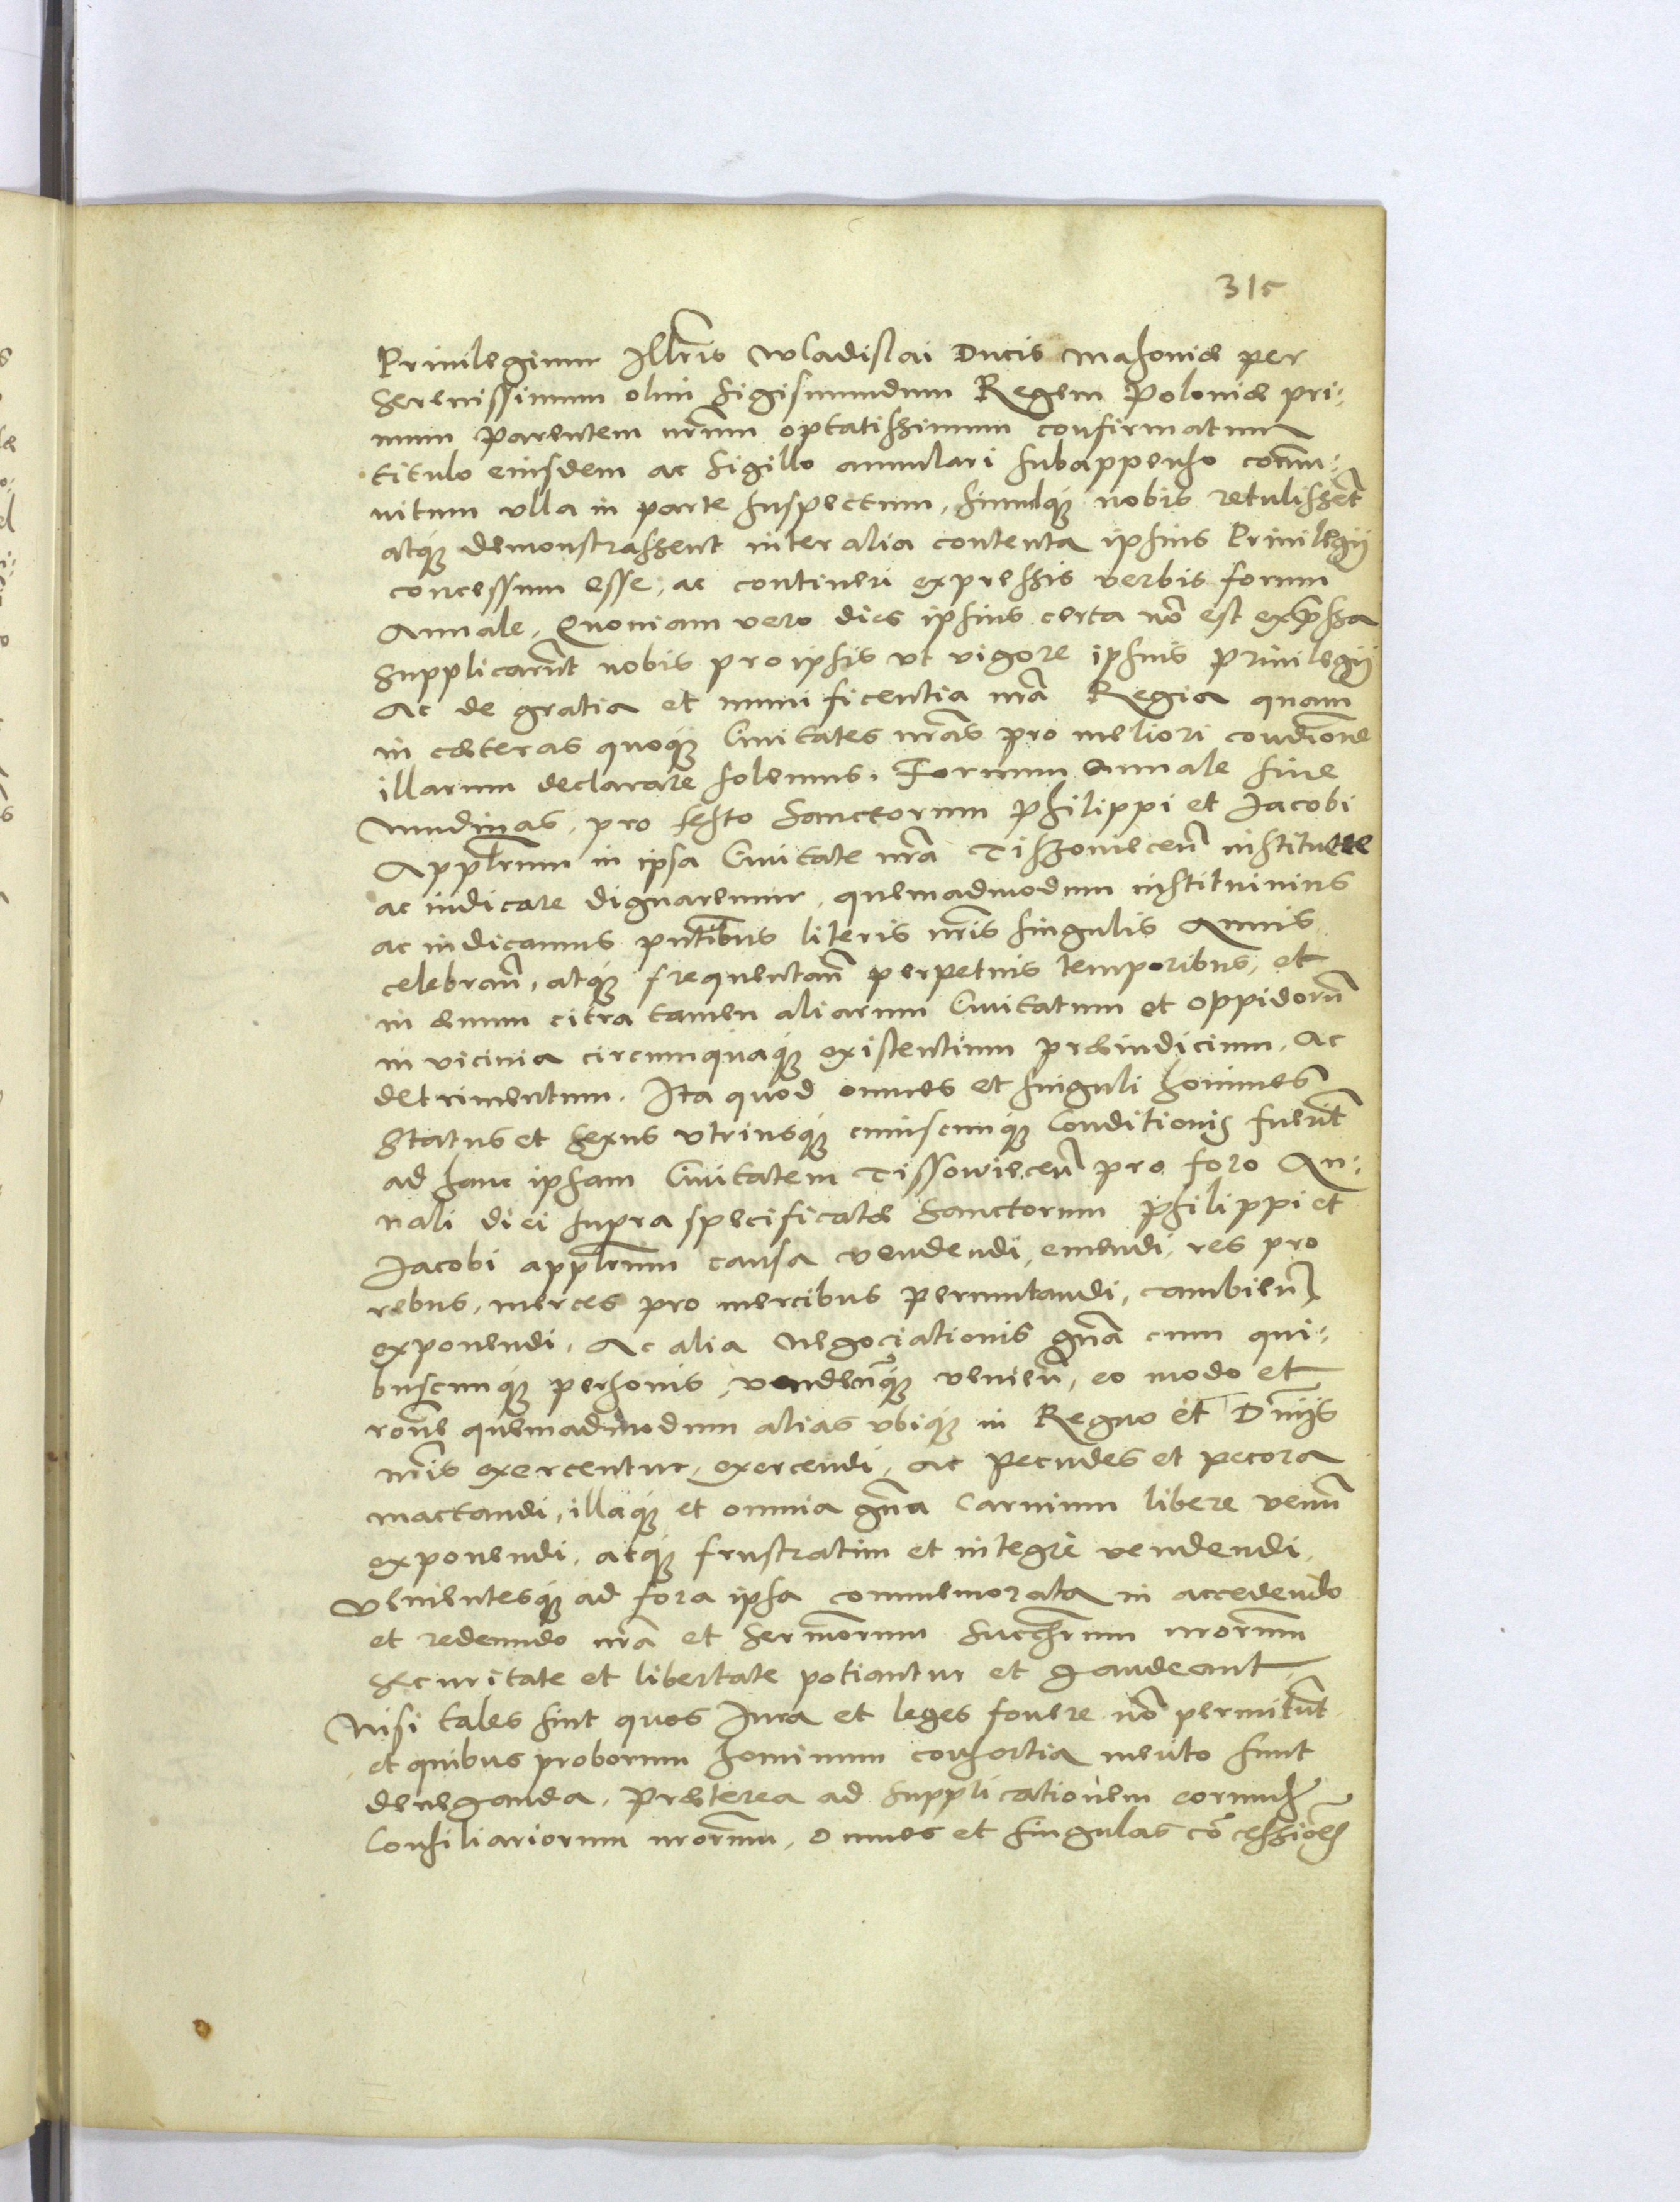 315
Priuilegium Illris Wladislai Ducis Masoniæ per
Serenissimum olim Sigismundum Regem Poloniæ pri:
mum Parentem nrum optatissimum confirmatum
titulo eiusdem ac Sigillo annulari subappenso comu:
nitum vlla in parte suspectum, simulq; nobis retulissent
atq; demonstrassent inter alia contenta ipsius Priuilegij
concessum esse, ac contineri expressis verbis forum
Annale, Quoniam vero dies ipsius certa no est expssa
Supplicarunt nobis pro ipsis vt vigore ipsius Priuilegij
Ac de gratia et munificentia nra Regia quam
in cæteras quoq; Ciuitates nras pro meliori condione
illarum declarare solemus. Forum Annale siue
Nundinas, pro festo Sanctorum Philippi et Jacobi
Appłrum in ipsa Ciuitate nra Tiszoniecen instituere
ac indicare dignaremur, quemadmodum instituimus
ac indicamus pntibus literis nris singulis Annis
celebran, atq; frequentan perpetuis temporibus, et
in æuum citra tamen aliarum Ciuitatum et oppidorum
in vicinia circumquaq; existentium præiudicium, Ac
detrimentum. Ita quod omnes et singuli homines
Status et Sexus vtriusq; cuiuscunq; Conditionis fuerint
ad hanc ipsam Ciuitatem Tissowiecen pro foro An:
nali diei supra specificatæ Sanctorum Philippi et
Jacobi appłrum causa vendendi, emendi, res pro
rebus, merces pro mercibus permutandi, cambien
exponendi, Ac alia Negociationis gna cum qui:
buscunq; personis, vendenq; venien, eo modo et
rone quemadmodum alias vbiq; in Regno et Dnijs
nris exercentur, exercendi, ac Pecudes et pecora
mactandi, illaq; et omnia gna Carnium libere venum
exponendi, atq; frustratim et integrè vendendi,
Venientesq; ad fora ipsa commemorata in accedendo
et redeundo nra et Sermorum Succrum nrorum
Securitate et libertate potiantur et gaudeant
Nisi tales sint quos Jura et leges fouere no permittunt
et quibus proborum hominum consortia merito sunt
deneganda. Præterea ad supplicationem eorund
Consiliariorum nrorum, omnes et singulas cocessiões